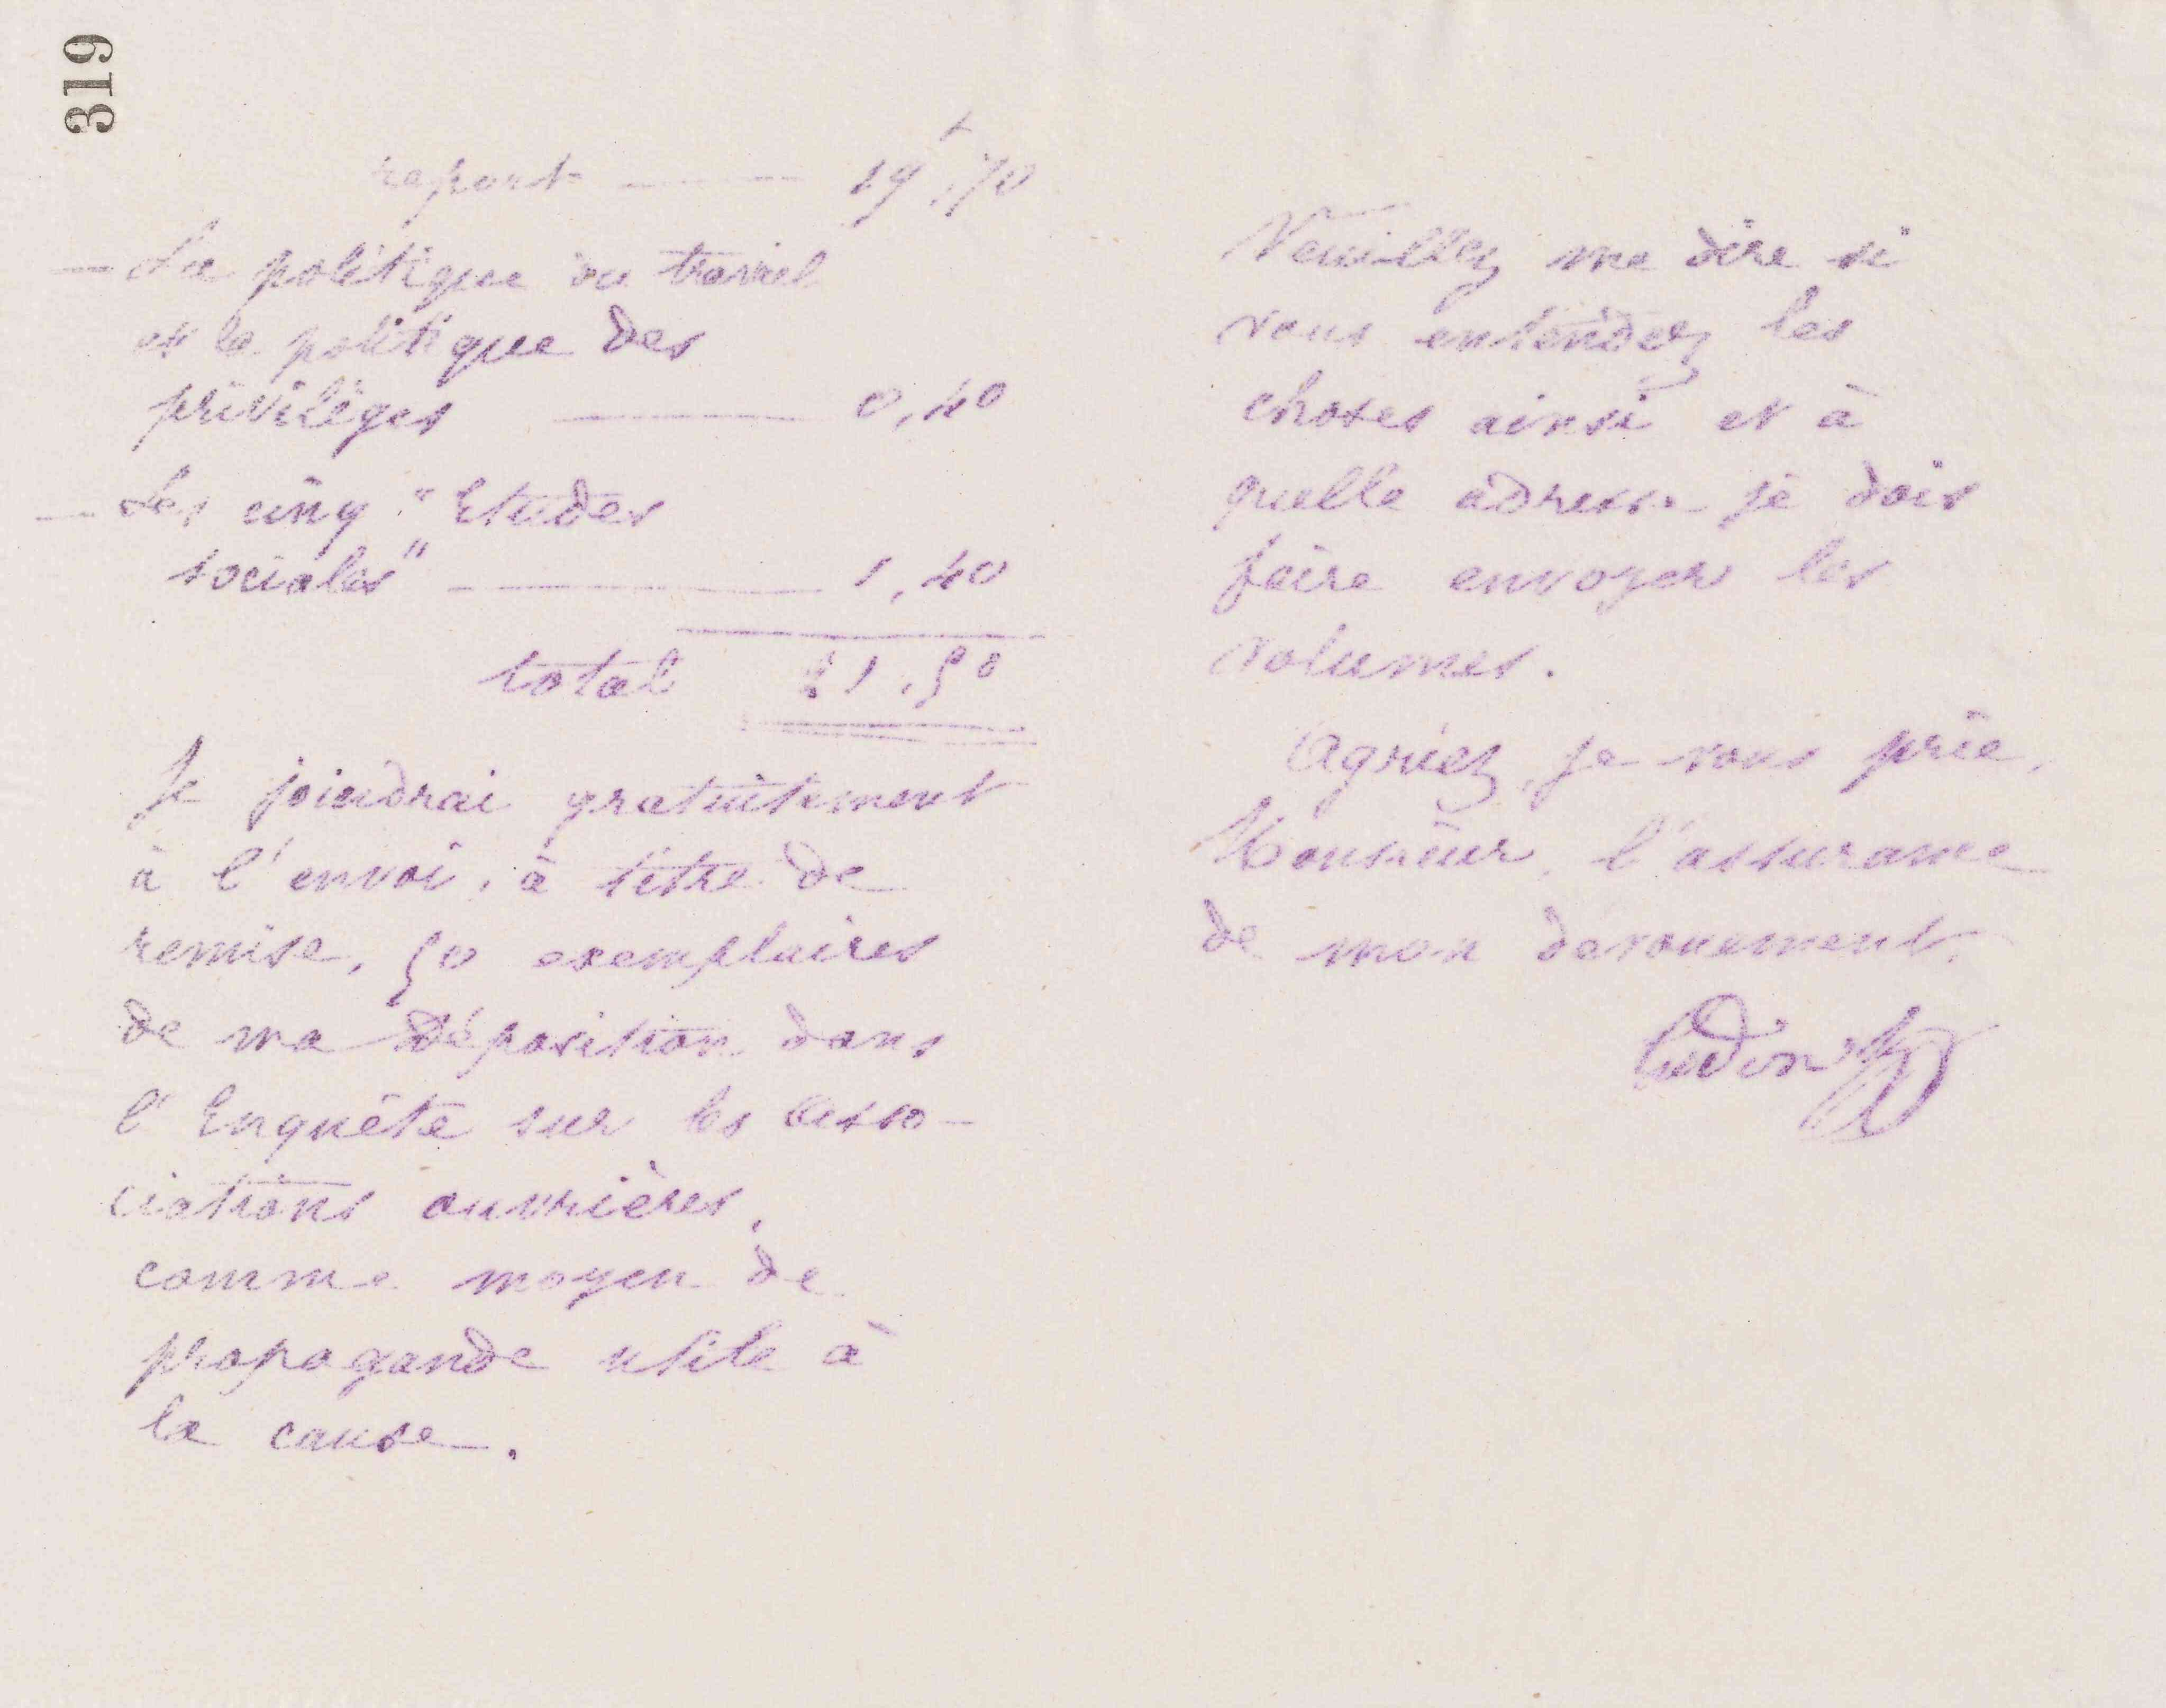 319
report — 19f,70
— La politique du travail
et la politique des
privilèges — 0,40
— Les cinq "Etudes
sociales" — 1,40
total 21,50
Je joindrai gratuitement
à l'envoi, à titre de
remise, 50 exemplaires
de ma Déposition dans
l'Enquête sur les Asso-
ciations ouvrières,
comme moyen de
propagande utile à
la cause.
Veuillez me dire si
vous entendez les
choses ainsi et à
quelle adresse je dois
faire envoyer les
volumes.
Agréez, je vous prie,
Monsieur, l'assurance
de mon dévouement.
Godin